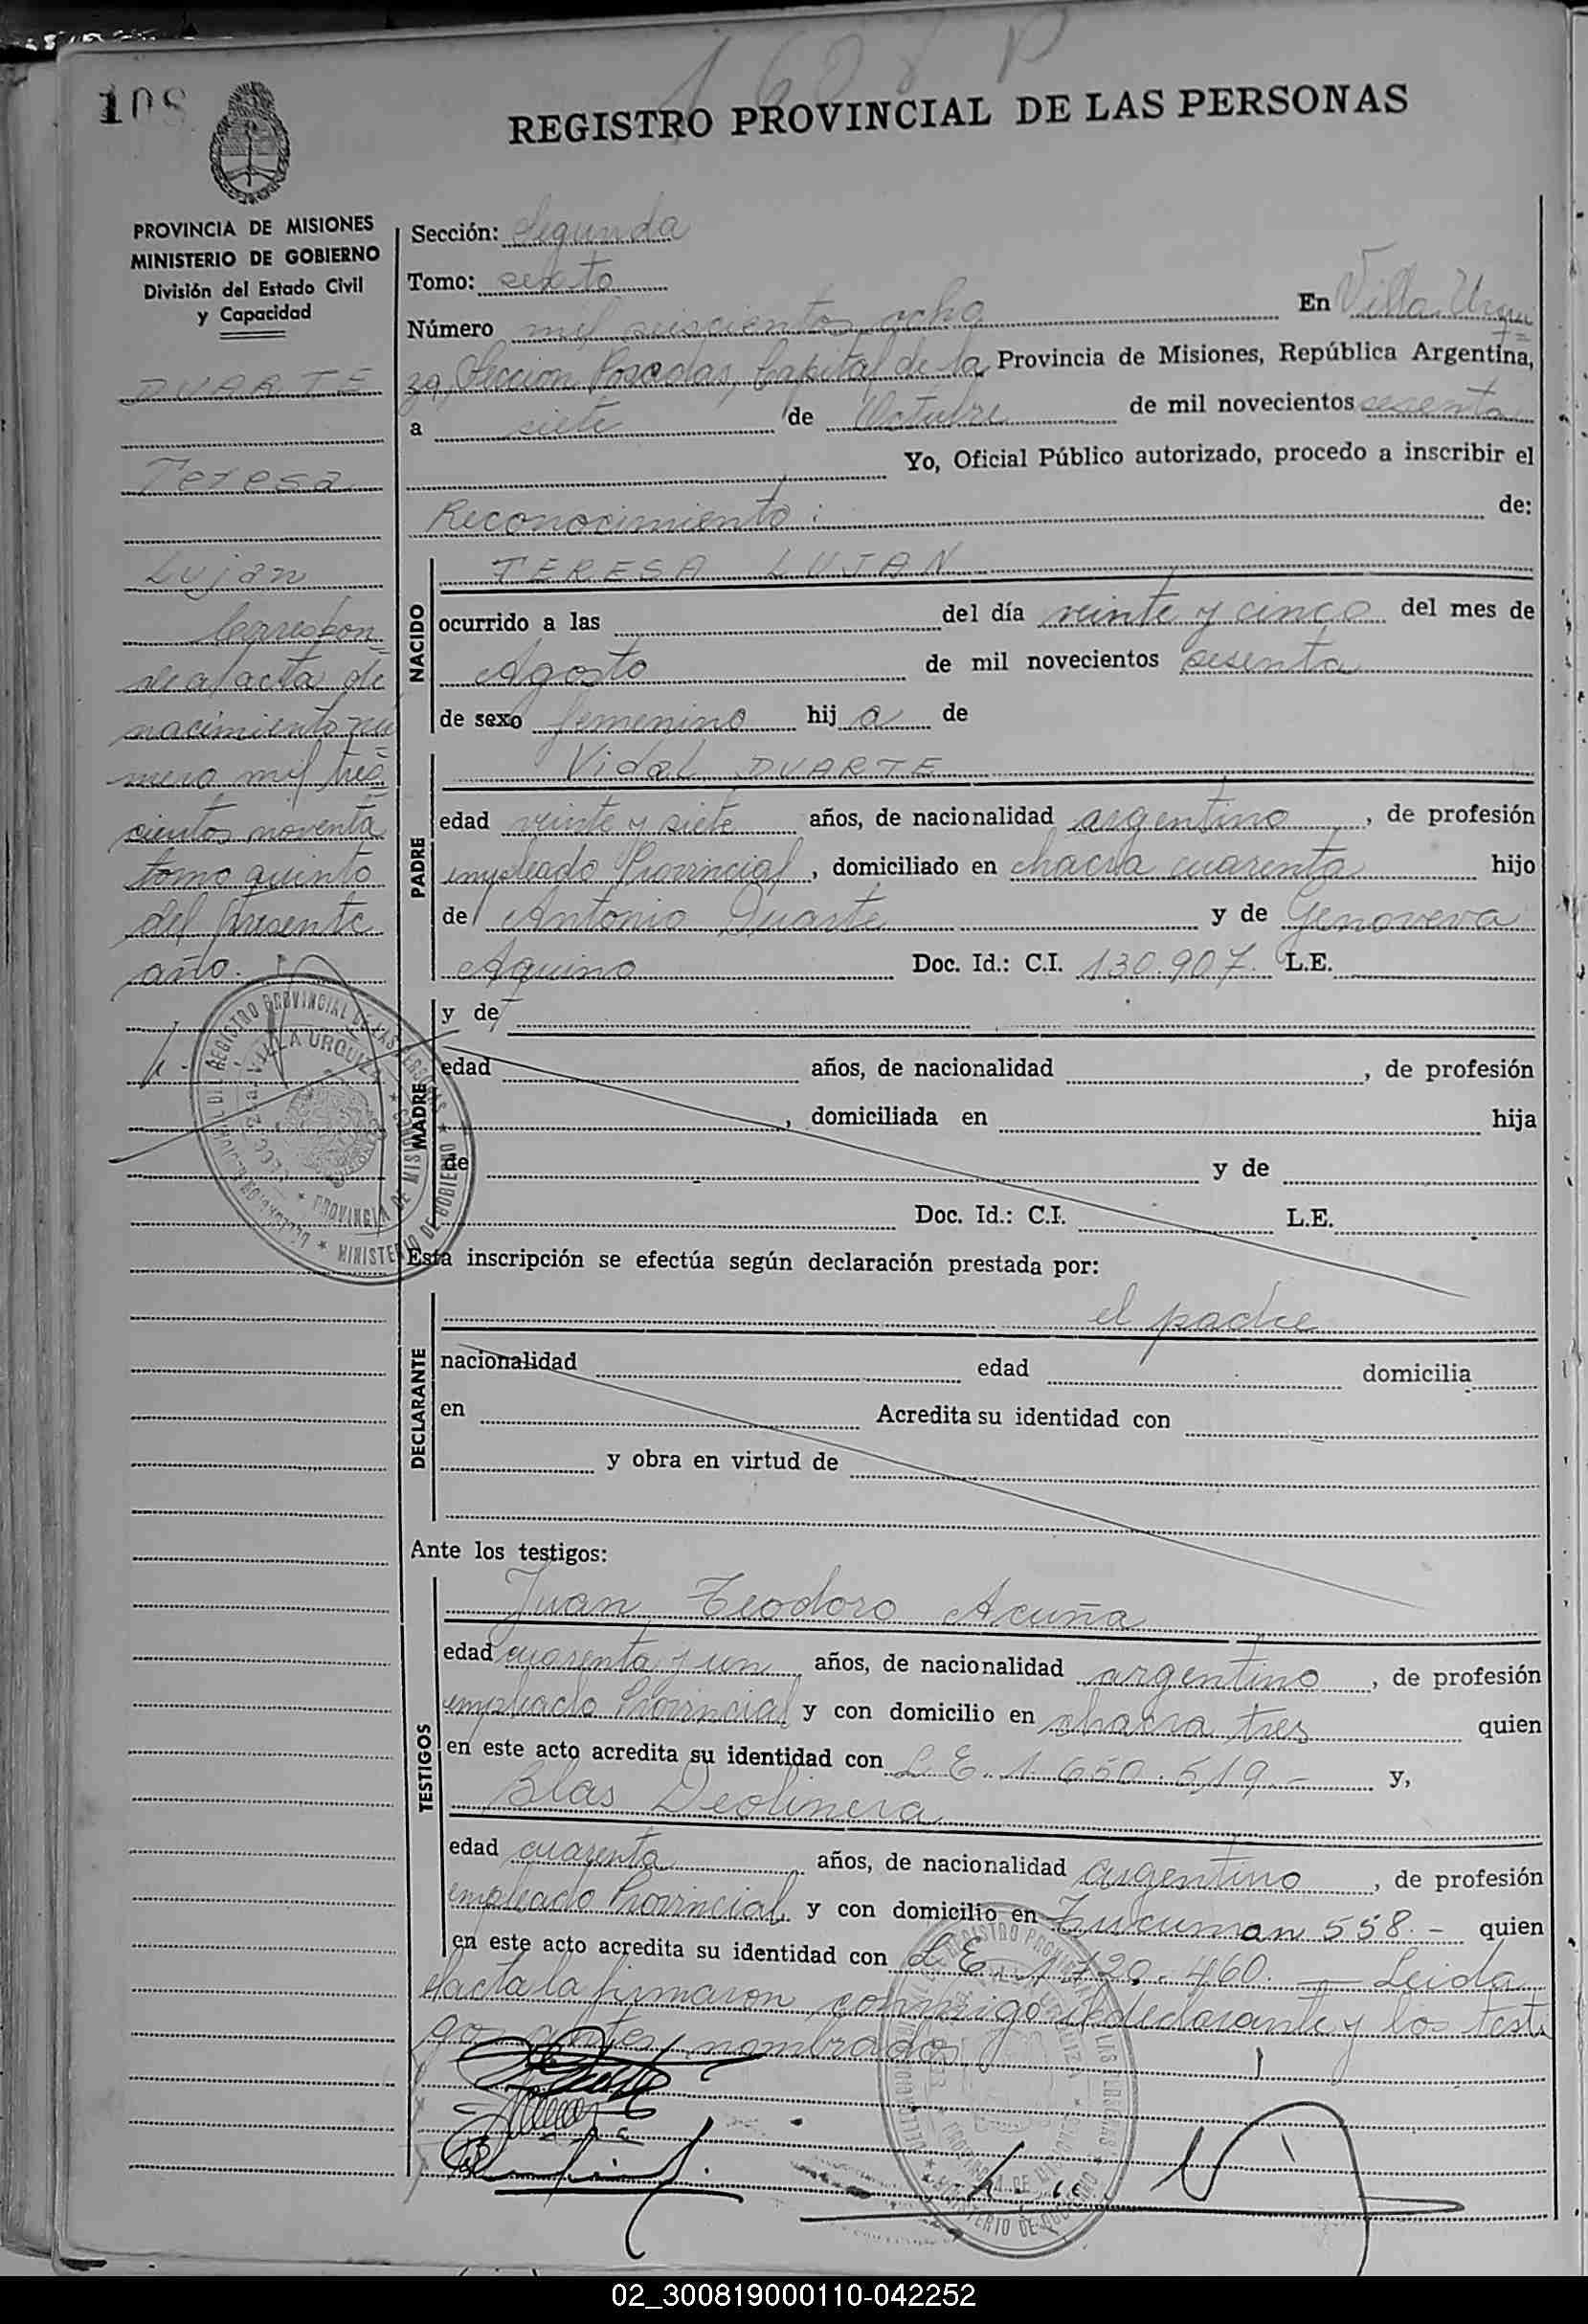 1608 P
108
REGISTRO PROVINCIAL DE LAS PERSONAS
PROVINCIA DE MISIONES
MINISTERIO DE GOBIERNO
División del Estado Civil
y Capacidad
DUARTE
Teresa
Luján
Correspon=
de al acta de
nacimiento nu=
mero mil tres
cientos noventa
tomo quinto
del presente
año.
Sección: Segunda
Tomo: sexto
Número mil seiscientos ocho En Villa Urqui=
za, Seccion Posadas, Capital de la Provincia de Misiones, República Argentina,
a siete de Octubre de mil novecientos sesenta
Yo, Oficial Público autorizado, procedo a inscribir el
Reconocimiento: de:
NACIDO
TERESA LUJAN
ocurrido a las del día veinte y cinco del mes de
Agosto de mil novecientos sesenta
de sexo femenino hij a de
PADRE
Vidal DUARTE
edad veinte y siete años, de nacionalidad argentino, de profesión
empleado Provincial, domiciliado en chacra cuarenta hijo
de Antonio Duarte y de Genoveva
Aquino Doc. Id.: C.I. 130.907. L.E.
MADRE
y de
edad años, de nacionalidad , de profesión
, domiciliada en hija
de y de
Doc. Id.: C.I. L.E.
Esta inscripción se efectúa según declaración prestada por:
DECLARANTE
el padre
nacionalidad edad domicilia
en Acredita su identidad con
y obra en virtud de
Ante los testigos:
TESTIGOS
Juan Teodoro Acuña
edad cuarenta y un años, de nacionalidad argentino, de profesión
empleado Provincial y con domicilio en chacra tres quien
en este acto acredita su identidad con L.E. 1.650.519.- y,
Blas Deolinera
edad cuarenta años, de nacionalidad argentino, de profesión
empleado Provincial y con domicilio en Tucuman 558.- quien
en este acto acredita su identidad con L.E. 1.720.460. — Leida
el acta la firmaron conmigo el declarante y los testi
gos antes nombrados
REGISTRO PROVINCIAL DE LAS PERSONAS
VILLA URQUIZA
PROVINCIA DE MISIONES
MINISTERIO DE GOBIERNO
02_300819000110-042252